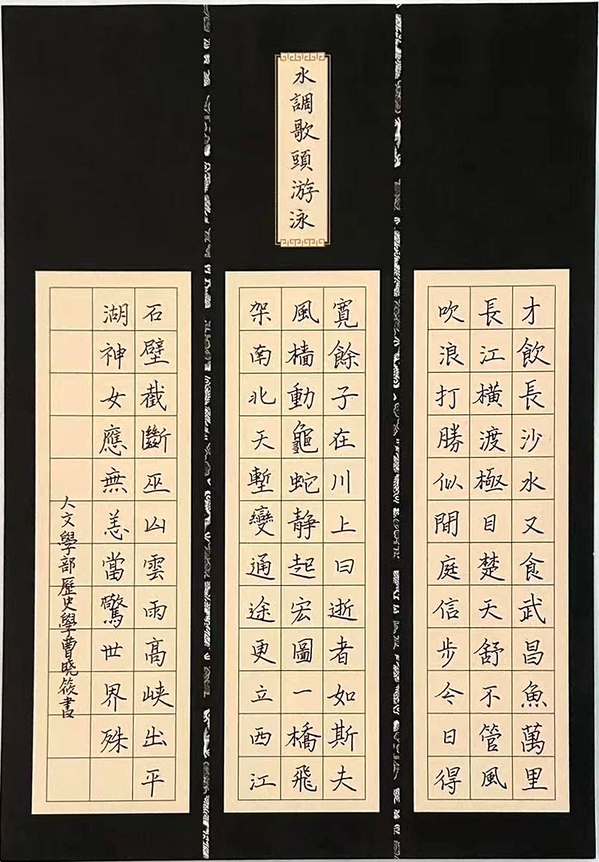 水調歌頭游泳
才飲長沙水又食武昌魚萬里
長江橫渡極目楚天舒不管風
吹浪打勝似閒庭信步今日得
寬餘子在川上曰逝者如斯夫
風檣動龜蛇静起宏圖一橋飛
架南北天塹變通途更立西江
石壁截斷巫山雲雨高峽出平
湖神女應無恙當驚世界殊
人文學部歷史學曹晓筱書